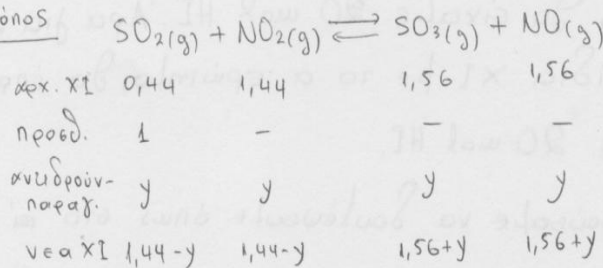 όπος SO₂(g) + NO₂(g) ⇌ SO₃(g) + NO(g)
αρχ. ΧΙ 0,44 1,44 1,56 1,56
προσθ. 1 – – –
αντιδρούν-
παραγ. y y y y
νέα ΧΙ 1,44-y 1,44-y 1,56+y 1,56+y